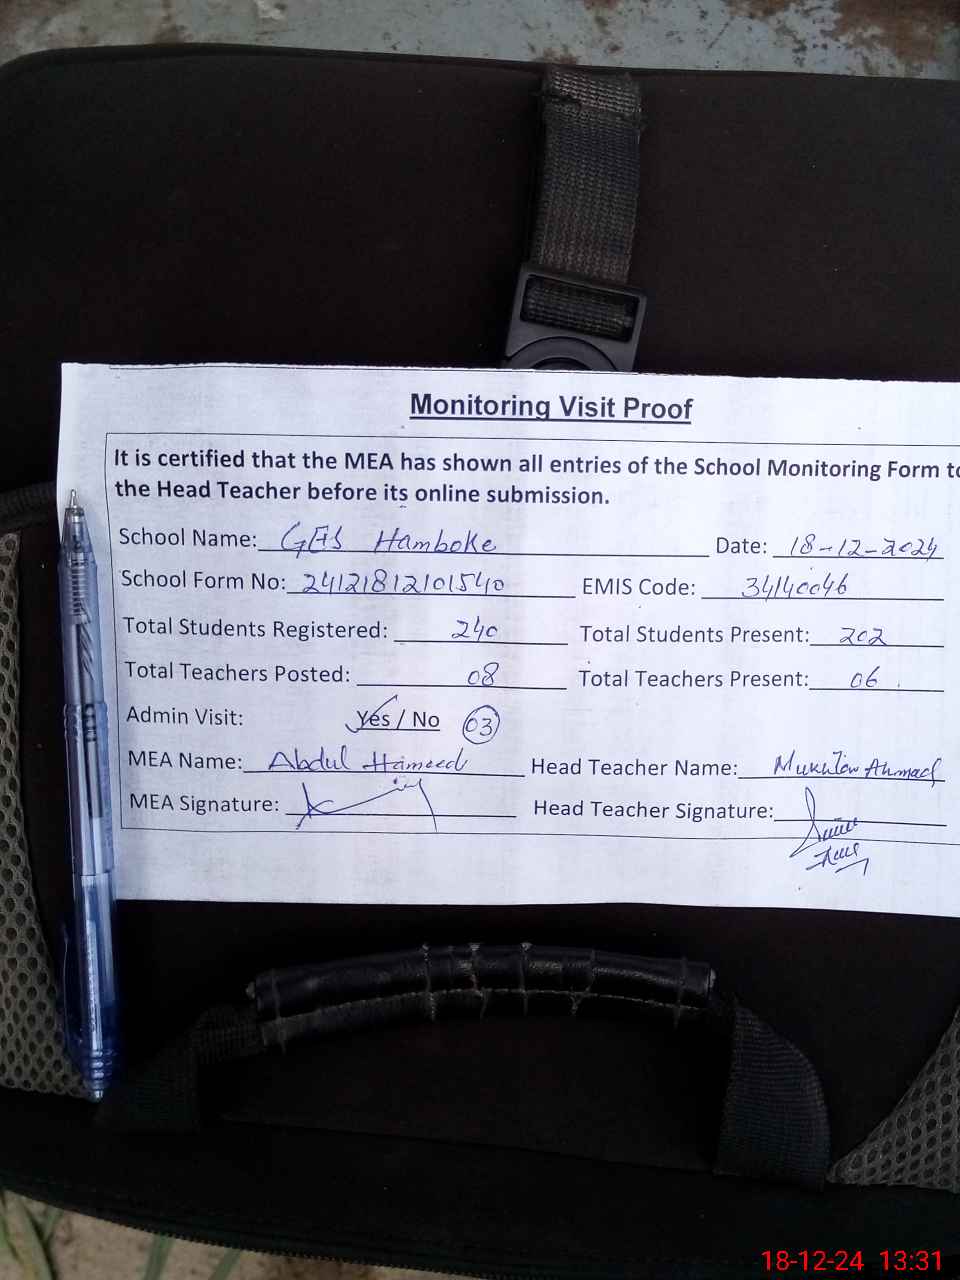 Monitoring Visit Proof
It is certified that the MEA has shown all entries of the School Monitoring Form to
the Head Teacher before its online submission.
School Name: GES Hamboke Date: 18-12-2024
School Form No: 24121812101540 EMIS Code: 34140046
Total Students Registered: 240 Total Students Present: 202
Total Teachers Posted: 08 Total Teachers Present: 06
Admin Visit: Yes / No 03
MEA Name: Abdul Hameed Head Teacher Name: Mukhtar Ahmad
MEA Signature: Head Teacher Signature:
18-12-24 13:31